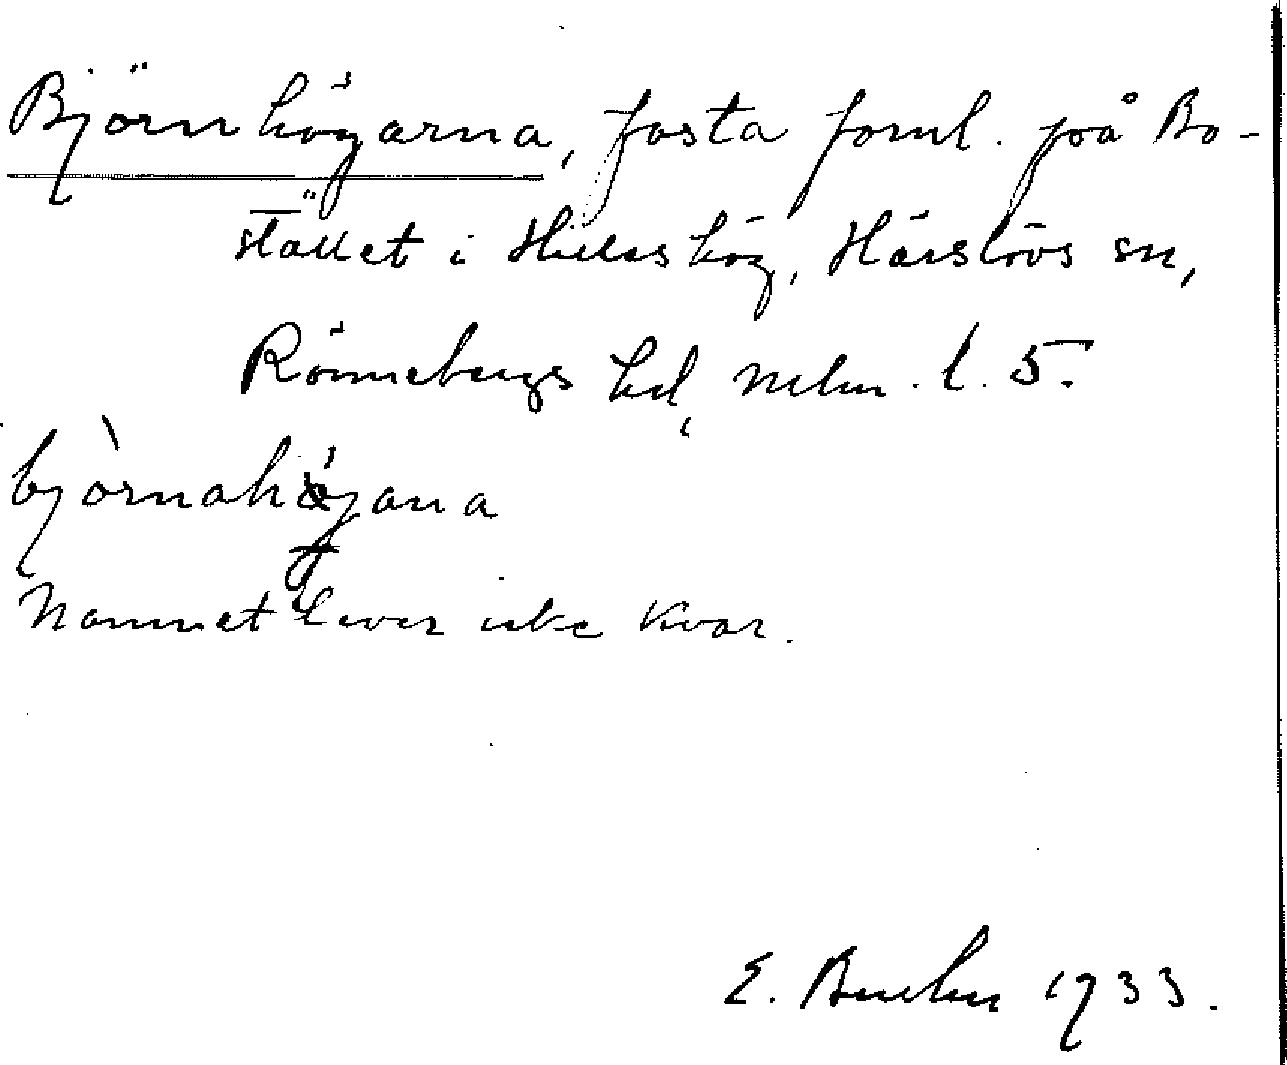 Björnhögarna, fasta fornl. på Bo-
stället i Hilleshög, Härslövs sn,
Rönnebergs hd, Mlm. l. 5.
björnahøjana
Namnet lever icke kvar.
E. 1933.